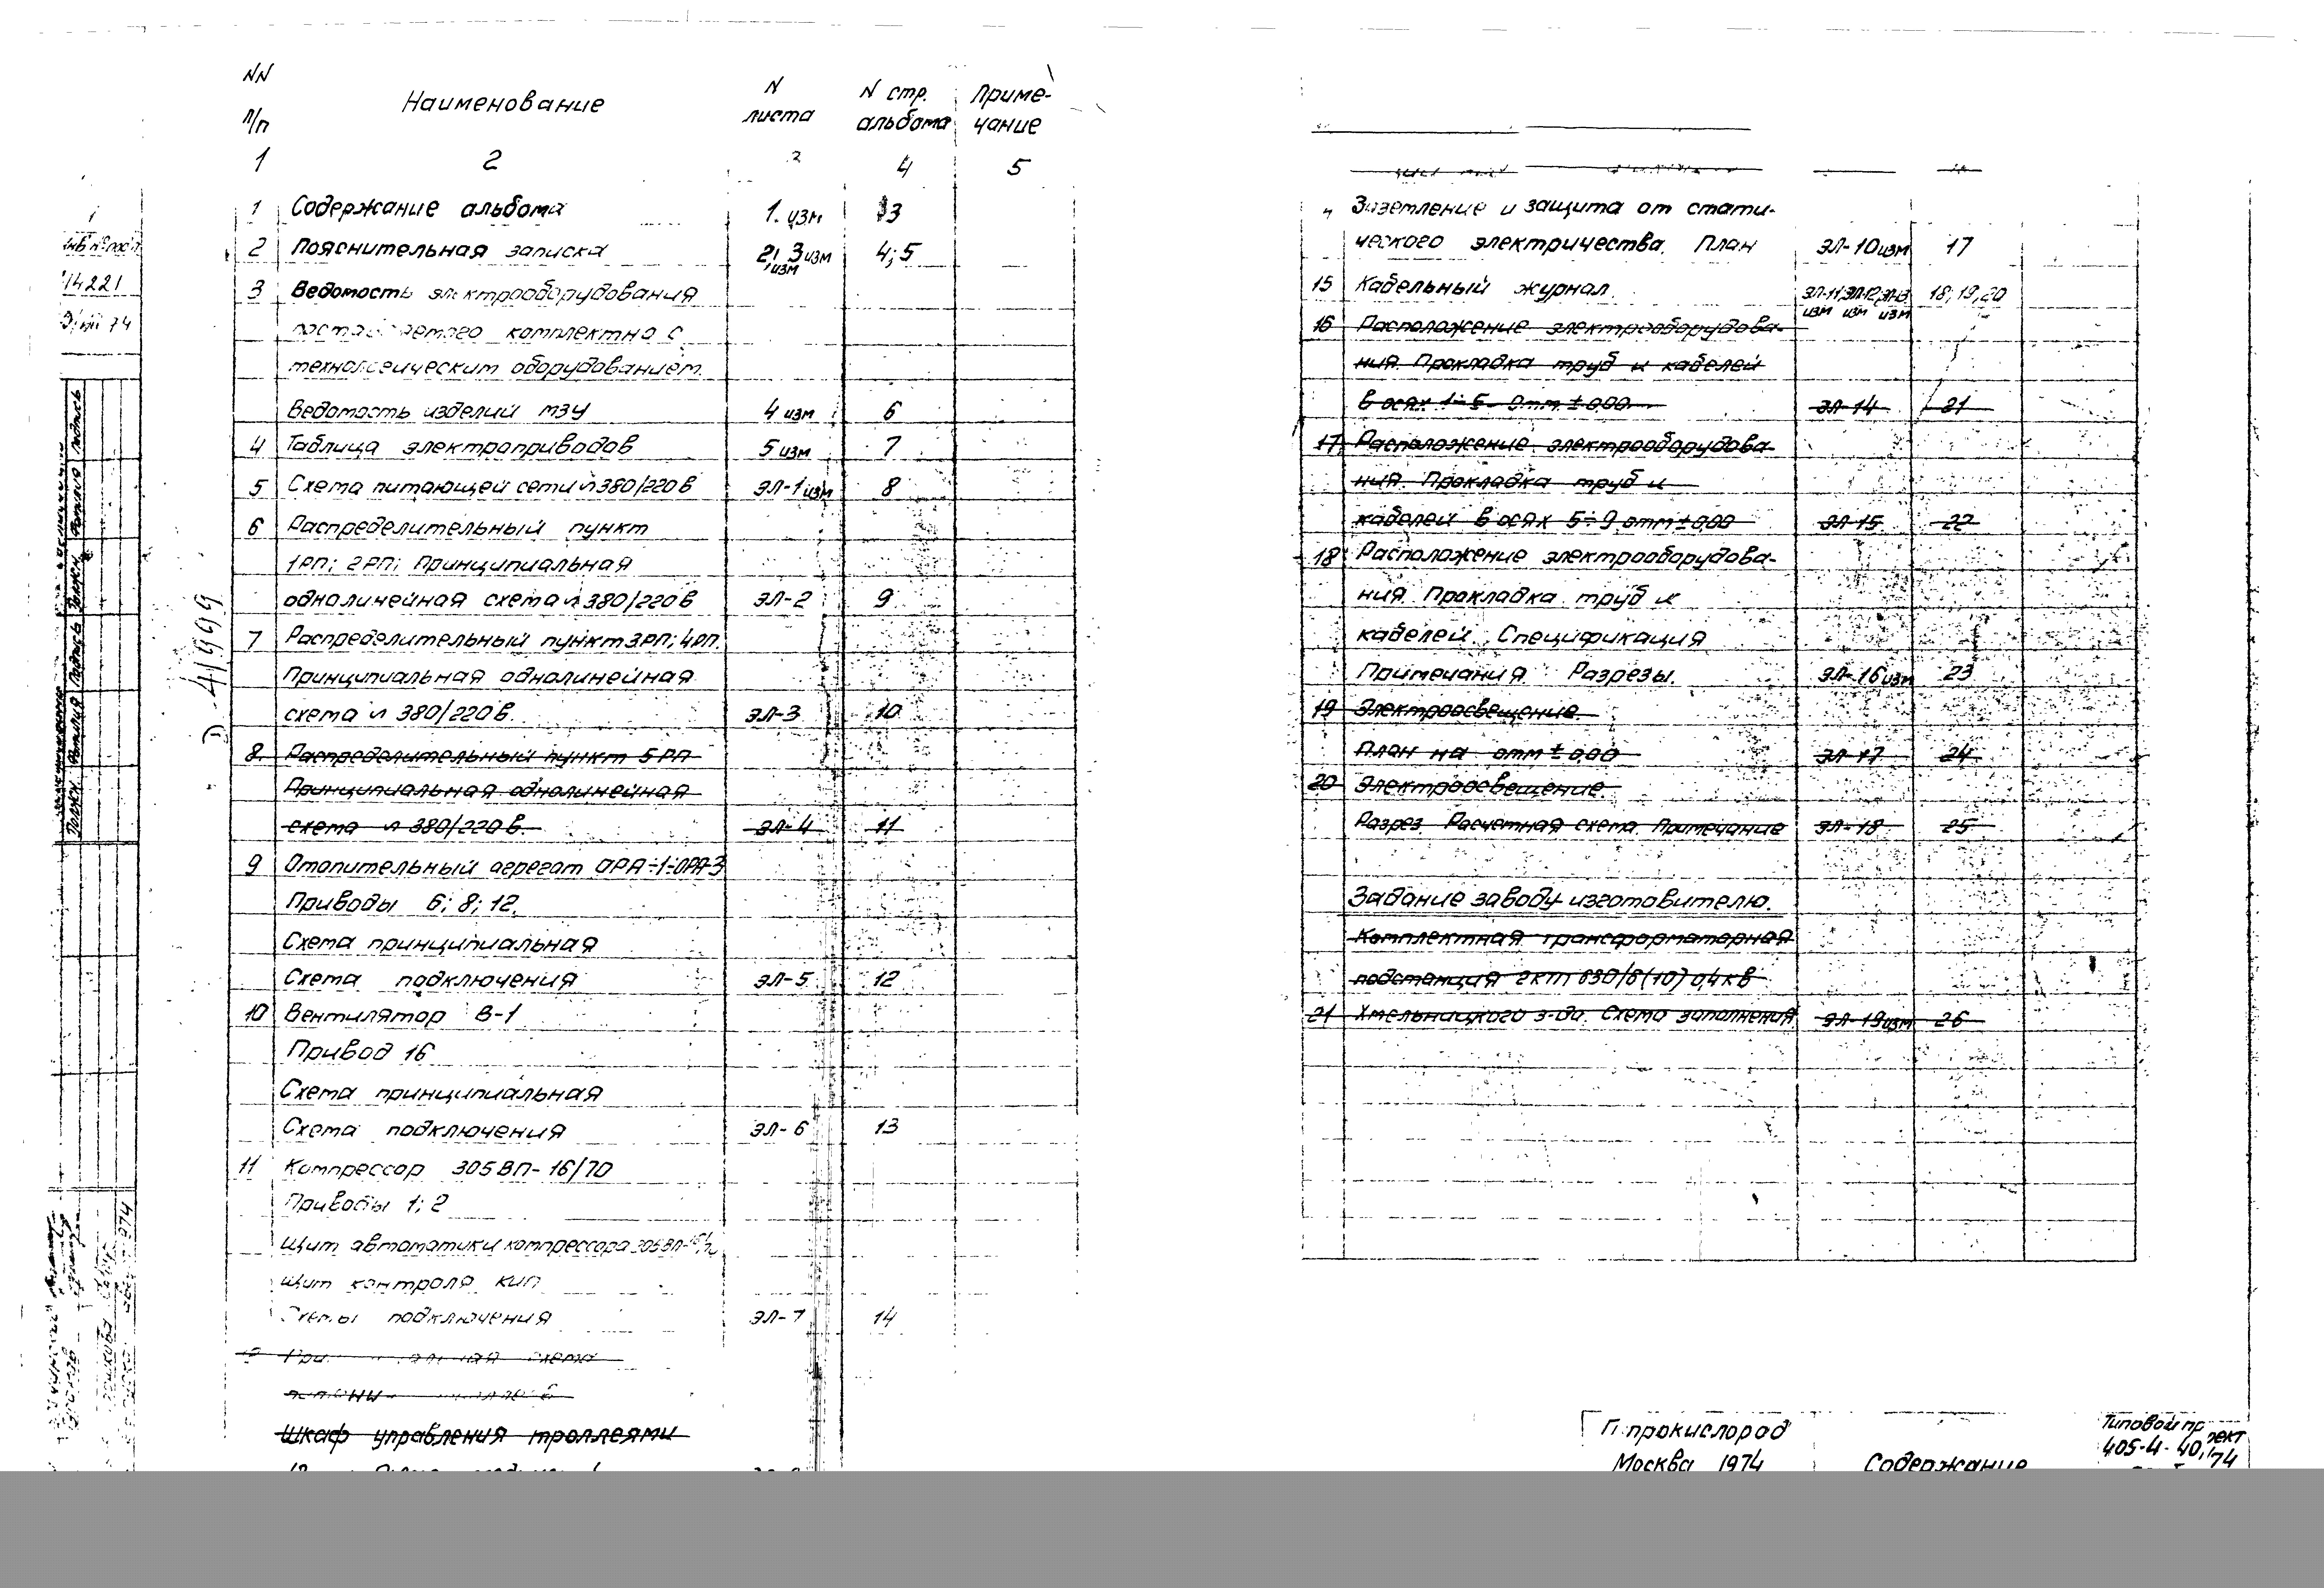 NN п/п
Наименование
N листа
N стр. альбома
Приме-чание
1 2 4 5
1 Содержание альбома 1. изм 3
2 Пояснительная записка 2; 3 изм 4; 5
изм
3 Ведомость электрооборудования
комплектно с
технологическим оборудованием.
Ведомость изделий МЗУ 4 изм 6
4 Таблица электроприводов 5 изм 7
5 Схема питающей сети ~380/220в ЭЛ-1 изм 8
6 Распределительный пункт
1РП; 2РП; Принципиальная
однолинейная схема ~380/220в ЭЛ-2 9
7 Распределительный пункт 3РП; 4РП.
Принципиальная однолинейная
схема ~ 380/220в. ЭЛ-3 10
8. Распределительный пункт 5РП
Принципиальная однолинейная
схема ~ 380/220в. ЭЛ-4 11
9 Отопительный агрегат ОРА-1÷ОРА-3
Приводы 6; 8; 12.
Схема принципиальная
Схема подключения ЭЛ-5 12
10 Вентилятор В-1
Привод 16
Схема принципиальная
Схема подключения ЭЛ-6 13
11 Компрессор 305ВП-16/70
Приводы 1; 2
Щит автоматики компрессора 305ВП-16/70
Щит контроля КИП
Схемы подключения ЭЛ-7 14
схема
Шкаф управления троллеями
Заземление и защита от стати-
ческого электричества. План ЭЛ-10 изм 17
15 Кабельный журнал. ЭЛ-11, ЭЛ-12, ЭЛ-13 18; 19, 20
изм изм изм
16 Расположение электрооборудова-
ния. Прокладка труб и кабелей
в осях 1÷5 отм. ±0.00 ЭЛ-14 21
17 Расположение электрооборудова-
ния. Прокладка труб и
кабелей в осях 5÷9 отм ±0.00 ЭЛ-15 22
18 Расположение электрооборудова-
ния. Прокладка труб и
кабелей. Спецификация
Примечания. Разрезы. ЭЛ-16 изм 23
19 Электроосвещение.
План на отм ±0.00 ЭЛ-17 24
20 Электроосвещение.
Разрез. Расчетная схема. Примечание ЭЛ-18 25
Задание заводу-изготовителю.
Комплектная трансформаторная
подстанция 2КТП 630/6(10)0,4кв
21 Хмельницкого з-да. Схема заполнения ЭЛ-19 изм 26
Гипрокислород
Москва 1974
Содержание
Типовой проект
405-4-40/74
14221
4199
Должн. Фамилия Подпись Должн. Фамилия Подпись